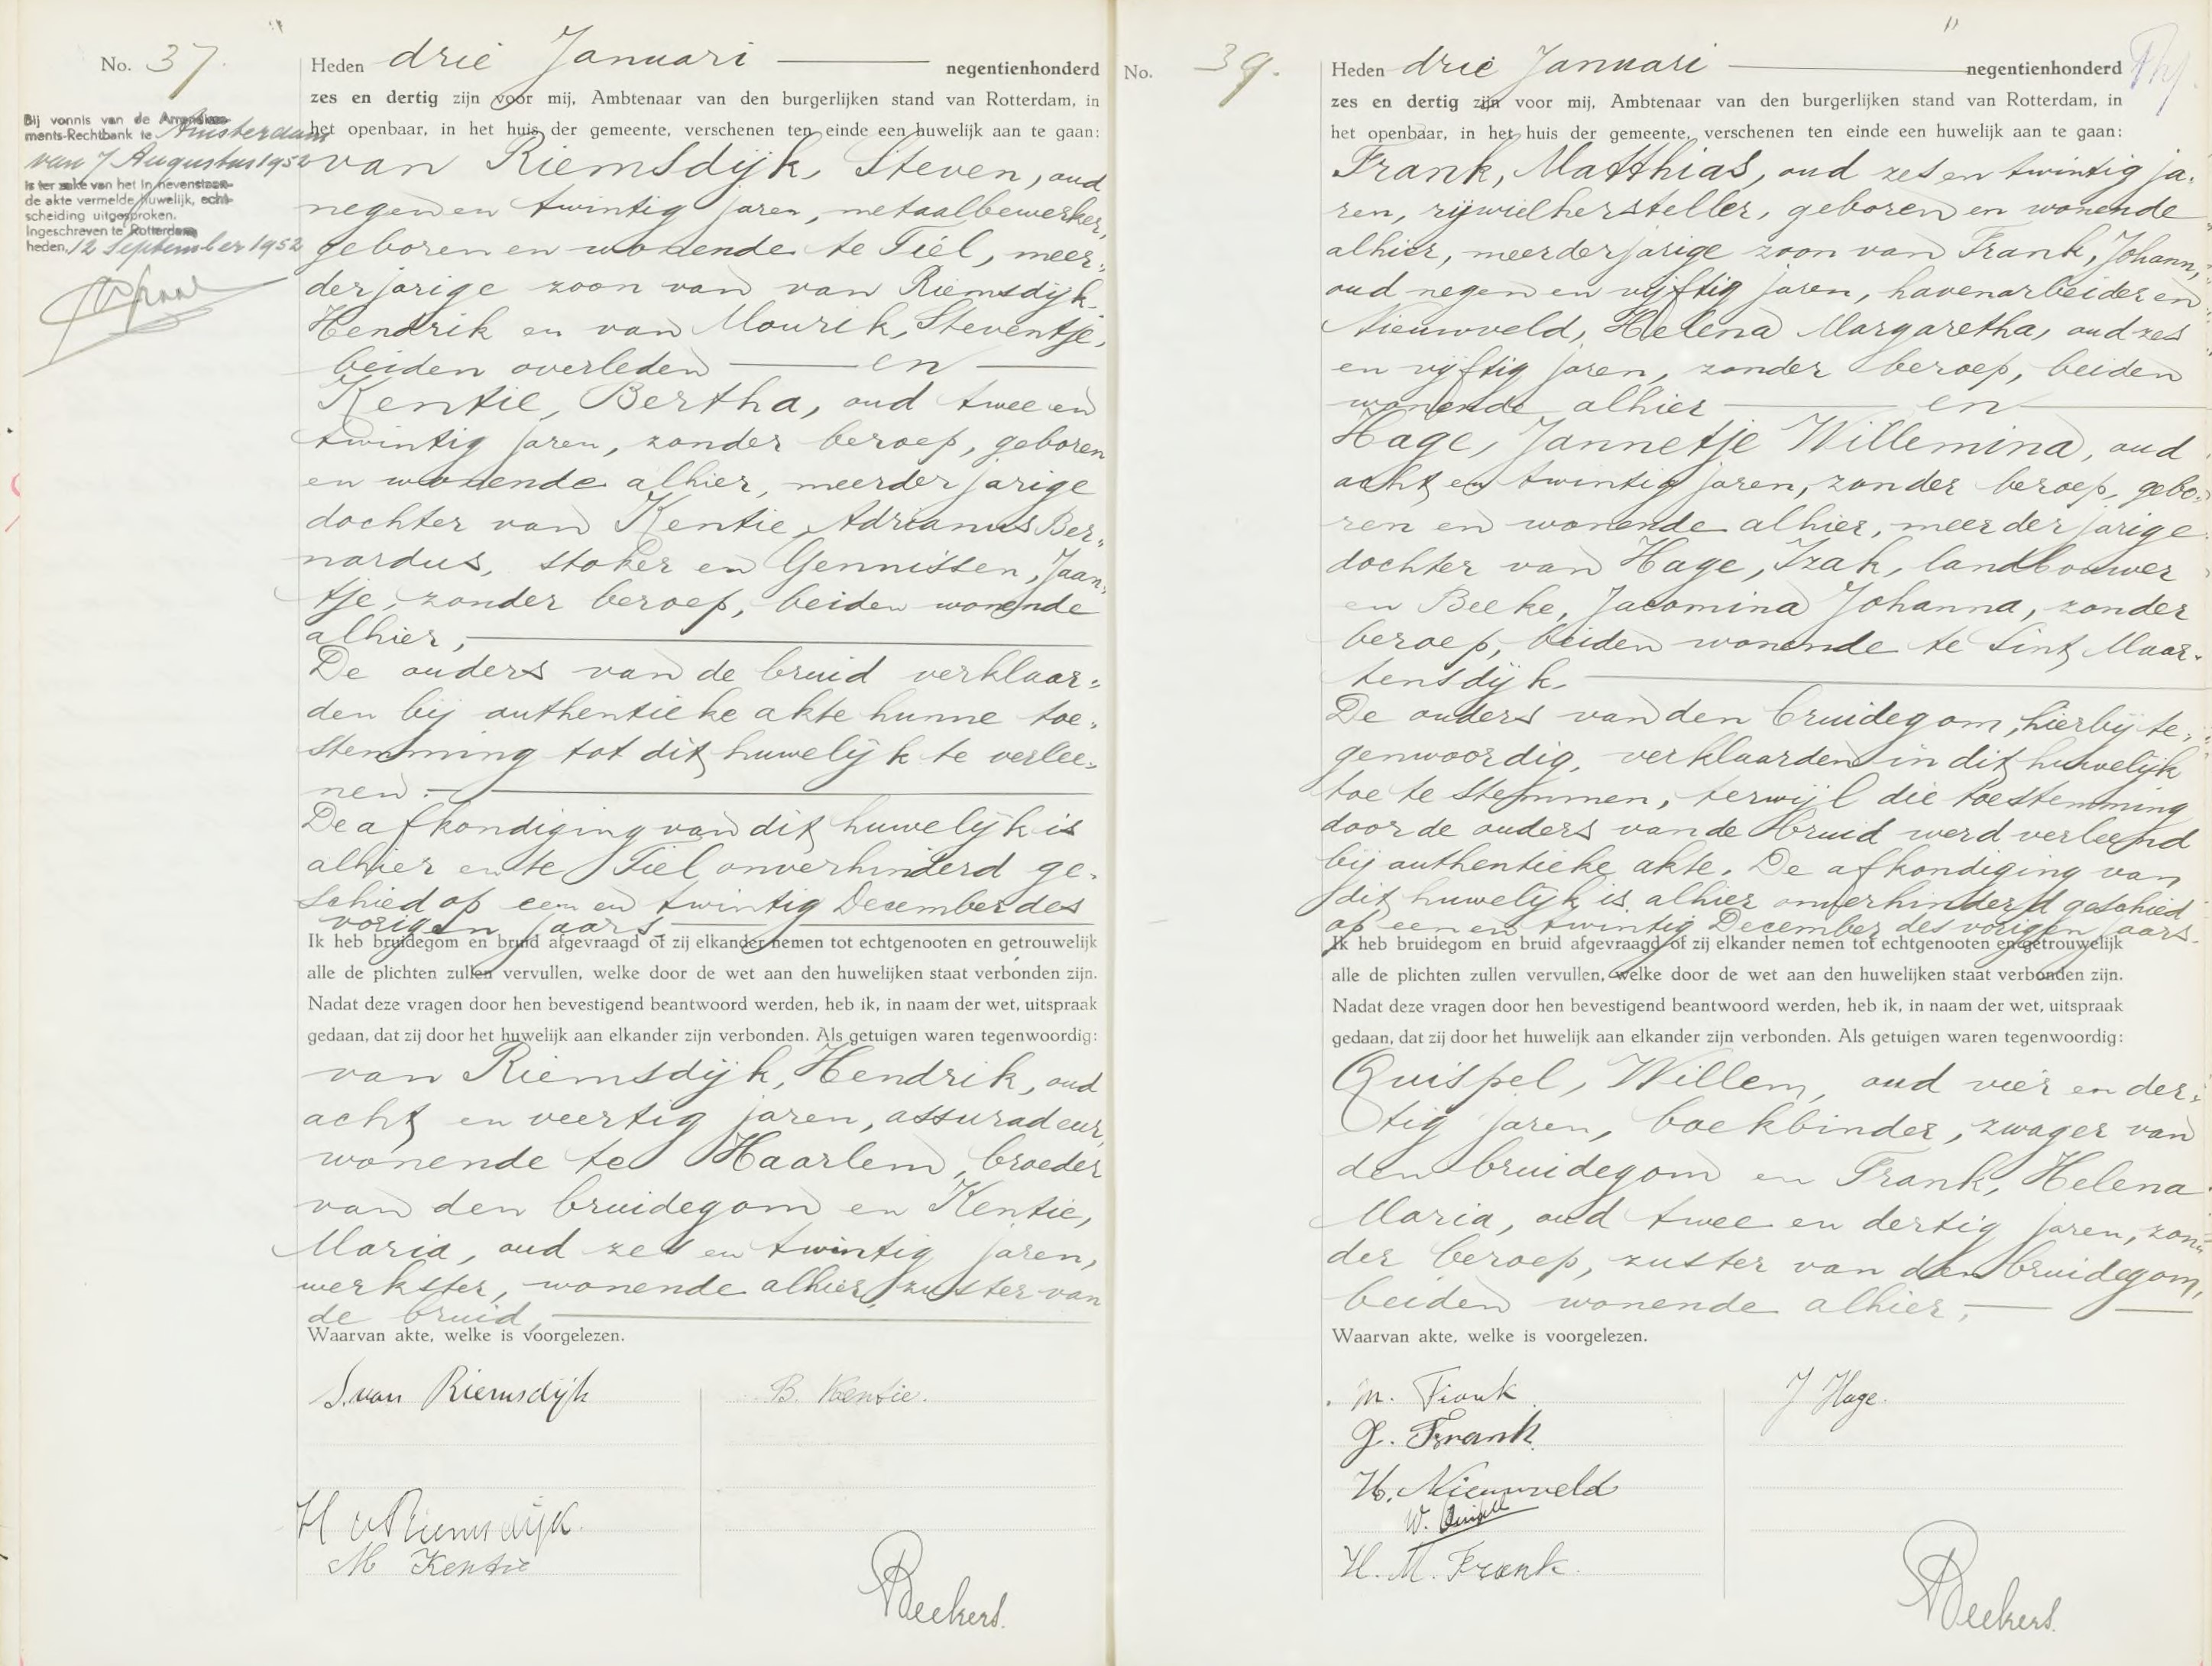 No. 37.
Bij vonnis van de Arrondisse-
ments-Rechtbank te Amsterdam
van 7 Augustus 1952
is ter zake van het in nevenstaan-
de akte vermelde huwelijk, echt-
scheiding uitgesproken.
Ingeschreven te Rotterdam
heden, 12 September 1952
Heden drie Januari negentienhonderd
zes en dertig zijn voor mij, Ambtenaar van den burgerlijken stand van Rotterdam, in
het openbaar, in het huis der gemeente, verschenen ten einde een huwelijk aan te gaan:
van Riemsdijk, Steven, oud
negen en twintig jaren, metaalbewerker,
geboren en wonende te Tiel, meer=
derjarige zoon van van Riemsdijk,
Hendrik en van Mourik, Steventje,
beiden overleden — en —
Kentie, Bertha, oud twee en
twintig jaren, zonder beroep, geboren
en wonende alhier, meerderjarige
dochter van Kentie, Adrianus Ber=
nardus, stoker en Gennissen, Jaan=
tje, zonder beroep, beiden wonende
alhier,
De ouders van de bruid verklaar=
den bij authentieke akte hunne toe=
stemming tot dit huwelijk te verlee=
nen.
De afkondiging van dit huwelijk is
alhier en te Tiel onverhinderd ge=
schied op een en twintig December des
vorigen jaars.
Ik heb bruidegom en bruid afgevraagd of zij elkander nemen tot echtgenooten en getrouwelijk
alle de plichten zullen vervullen, welke door de wet aan den huwelijken staat verbonden zijn.
Nadat deze vragen door hen bevestigend beantwoord werden, heb ik, in naam der wet, uitspraak
gedaan, dat zij door het huwelijk aan elkander zijn verbonden. Als getuigen waren tegenwoordig:
van Riemsdijk, Hendrik, oud
acht en veertig jaren, assuradeur,
wonende te Haarlem, broeder
van den bruidegom en Kentie,
Maria, oud zes en twintig jaren,
werkster, wonende alhier, zuster van
de bruid,
Waarvan akte, welke is voorgelezen.
S. van Riemsdijk
B. Kentie.
H v Riemsdijk.
M Kentie
Beekers.
No. 39.
Heden drie Januari negentienhonderd
zes en dertig zijn voor mij, Ambtenaar van den burgerlijken stand van Rotterdam, in
het openbaar, in het huis der gemeente, verschenen ten einde een huwelijk aan te gaan:
Frank, Matthias, oud zes en twintig ja=
ren, rijwielhersteller, geboren en wonende
alhier, meerderjarige zoon van Frank, Johann,
oud negen en vijftig jaren, havenarbeider en
Nieuwveld, Helena Margaretha, oud zes
en vijftig jaren, zonder beroep, beiden
wonende alhier — en —
Hage, Jannetje Willemina, oud
acht en twintig jaren, zonder beroep, gebo=
ren en wonende alhier, meerderjarige
dochter van Hage, Izak, landbouwer
en Beeke, Jacomina Johanna, zonder
beroep, beiden wonende te Sint Maar=
tensdijk.
De ouders van den bruidegom, hierbij te=
genwoordig, verklaarden in dit huwelijk
toe te stemmen, terwijl die toestemming
door de ouders van de bruid werd verleend
bij authentieke akte. De afkondiging van
dit huwelijk is alhier onverhinderd geschied
op een en twintig December des vorigen jaars.
Ik heb bruidegom en bruid afgevraagd of zij elkander nemen tot echtgenooten en getrouwelijk
alle de plichten zullen vervullen, welke door de wet aan den huwelijken staat verbonden zijn.
Nadat deze vragen door hen bevestigend beantwoord werden, heb ik, in naam der wet, uitspraak
gedaan, dat zij door het huwelijk aan elkander zijn verbonden. Als getuigen waren tegenwoordig:
Quispel, Willem, oud vier en der=
tig jaren, boekbinder, zwager van
den bruidegom en Frank, Helena
Maria, oud twee en dertig jaren, zon=
der beroep, zuster van den bruidegom,
beiden wonende alhier,
Waarvan akte, welke is voorgelezen.
M. Frank
J Hage.
J. Frank.
H. Nieuwveld
W. Quispel
H. M. Frank.
Beekers.